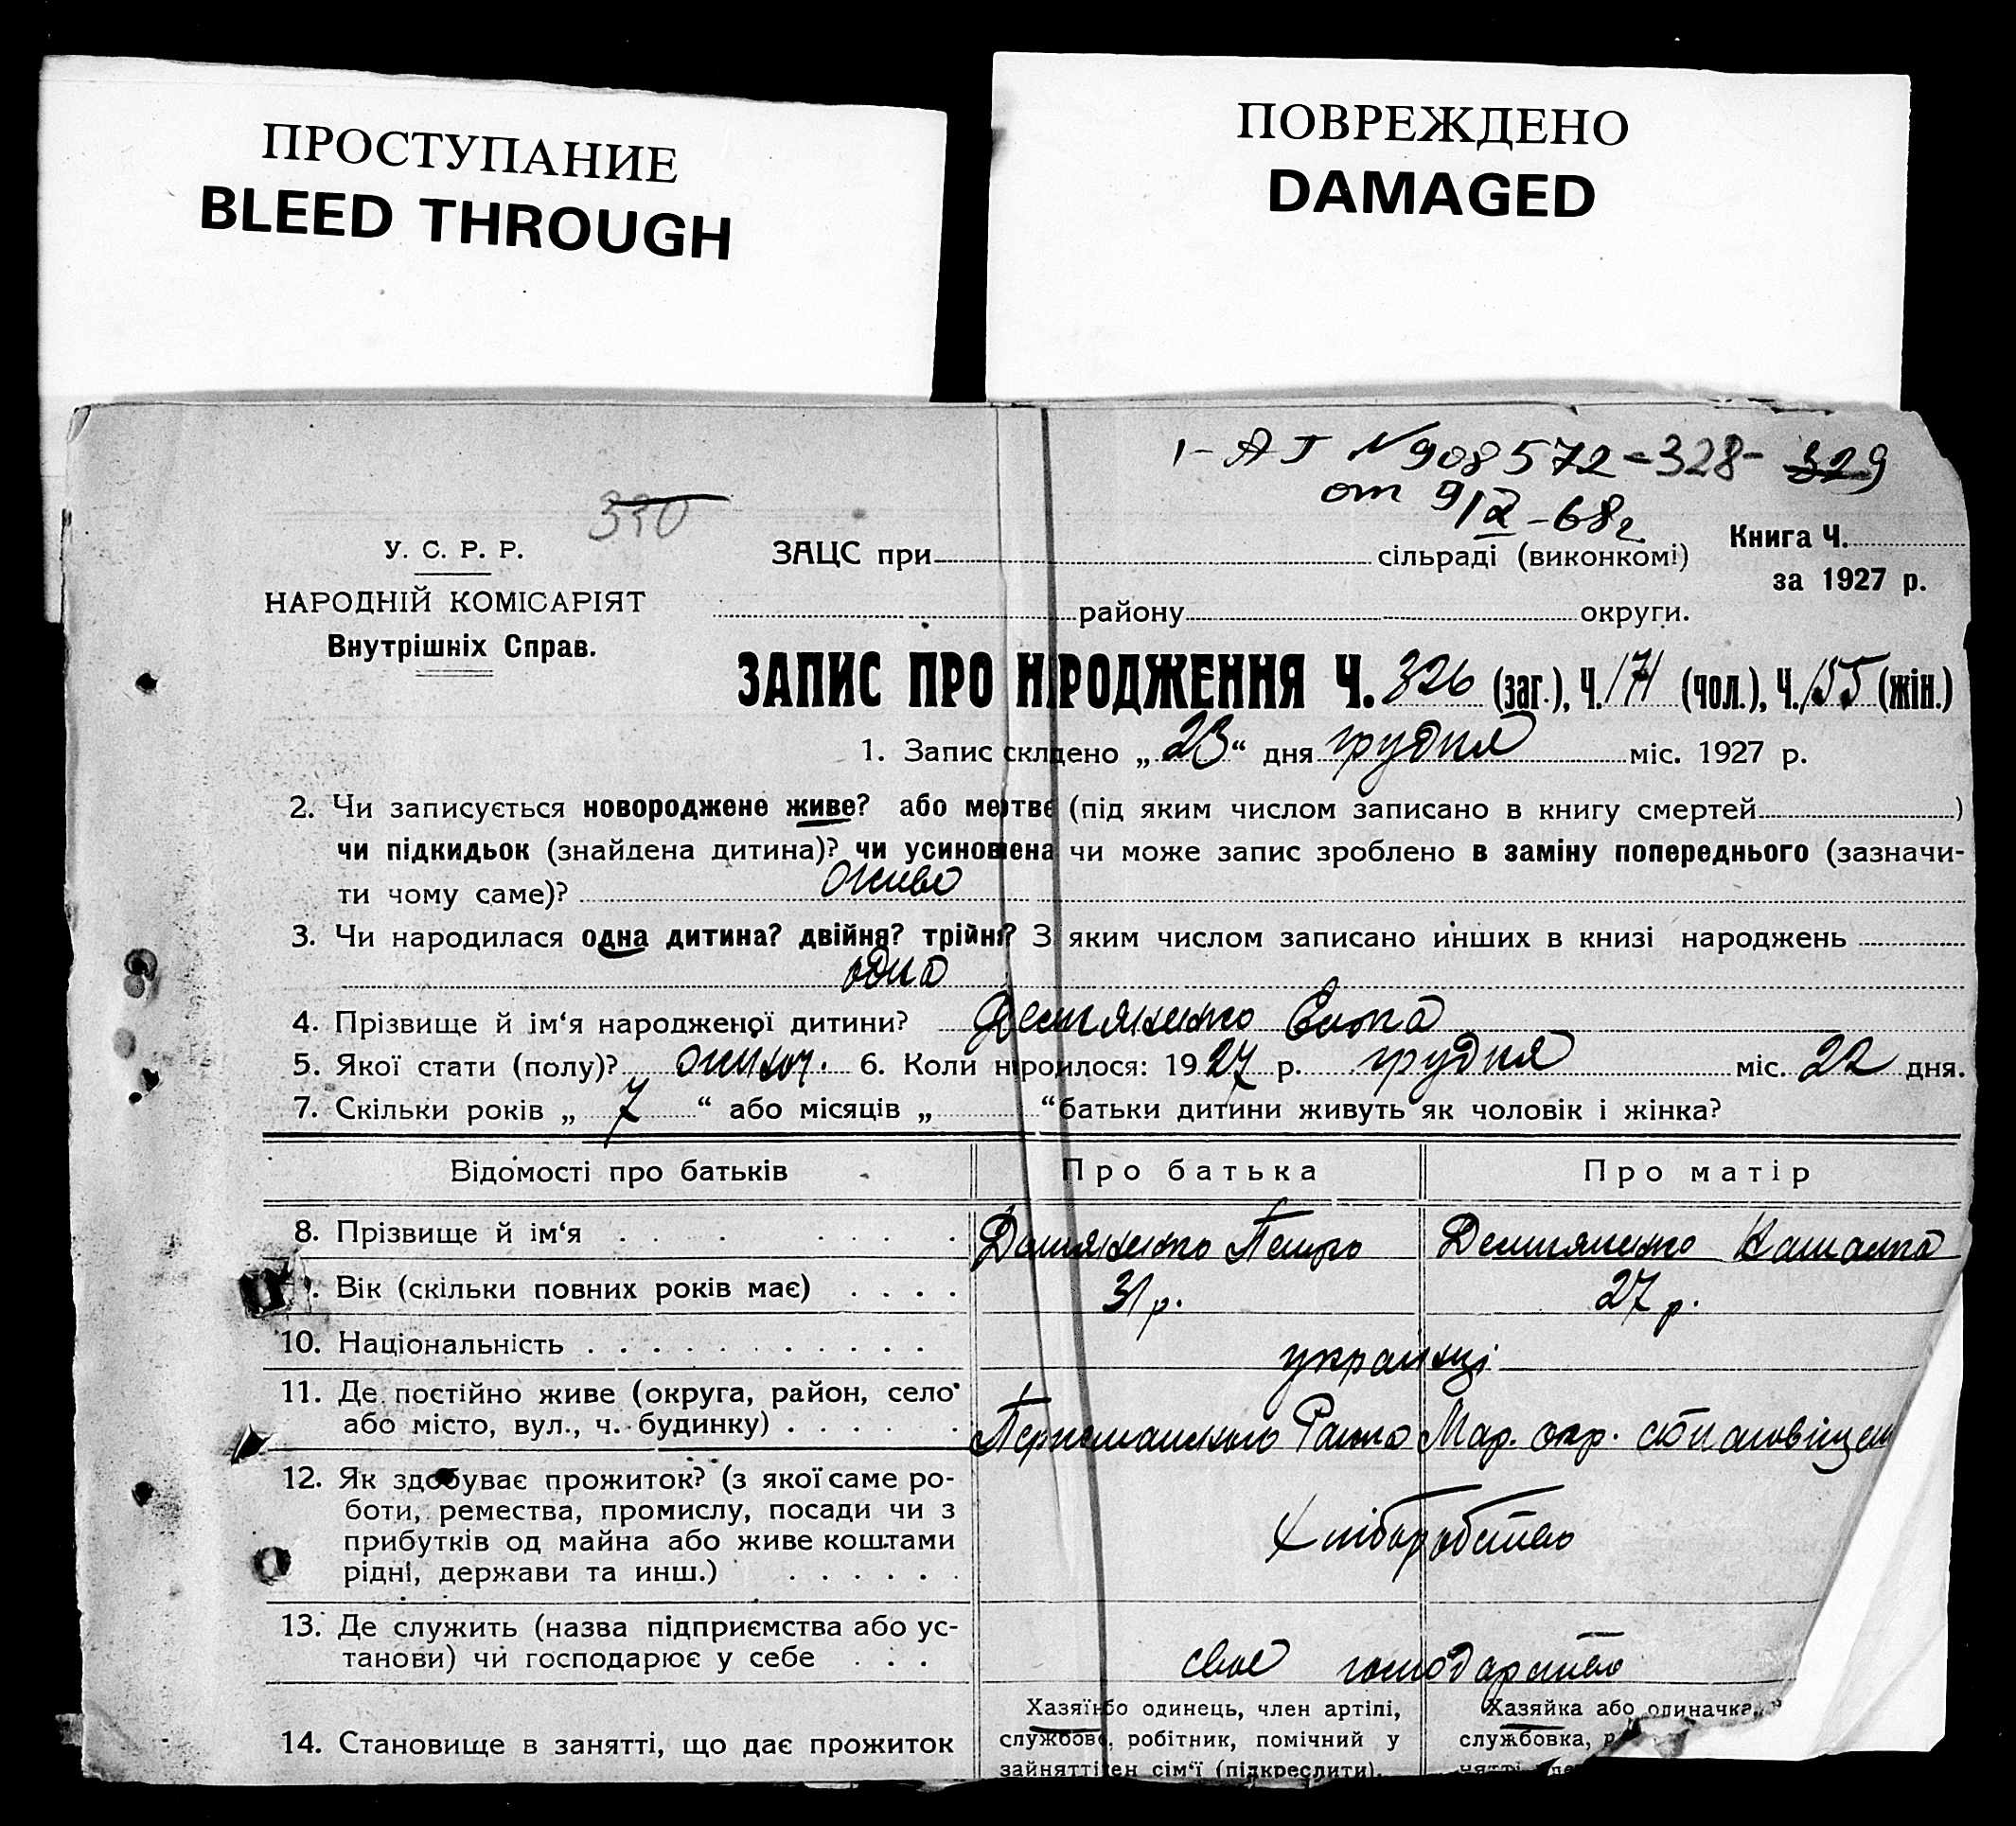 ПРОСТУПАНИЕ
BLEED THROUGH
ПОВРЕЖДЕНО
DAMAGED
1-АГ N 908572-328-329
от 9/IX-68г
330
У. С. Р. Р.
НАРОДНІЙ КОМІСАРІЯТ
Внутрішніх Справ.
ЗАЦС при сільраді (виконкомі)
Книга Ч.
за 1927 р.
району округи.
ЗАПИС ПРО НРОДЖЕННЯ Ч. 326 (заг.), Ч. 171 (чол.), Ч. 155 (жін.)
1. Запис склдено „ 23 “ дня грудня міс. 1927 р.
2. Чи записується новороджене живе? або мертве (під яким числом записано в книгу смертей )
чи підкидьок (знайдена дитина)? чи усиновлена чи може запис зроблено в заміну попереднього (зазначи-
ти чому саме)? живе
3. Чи народилася одна дитина? двійня? трійня? З яким числом записано инших в книзі народжень
одна
4. Прізвище й ім‘я народженої дитини?
5. Якої стати (полу)? жіноч. 6. Коли нроилося: 1927 р. грудня міс. 22 дня.
7. Скільки років „ 7 “ або місяців „ “ батьки дитини живуть як чоловік і жінка?
Відомості про батьків Про батька Про матір
8. Прізвище й ім‘я Петро
9. Вік (скільки повних років має) 31 р. 27 р.
10. Національність українці
11. Де постійно живе (округа, район, село
або місто, вул., ч. будинку) Мар. окр.
12. Як здобуває прожиток? (з якої саме ро-
боти, ремества, промислу, посади чи з
прибутків од майна або живе коштами
рідні, держави та инш.) Хліборобство
13. Де служить (назва підприємства або ус-
танови) чи господарює у себе своє господарство
14. Становище в занятті, що дає прожиток
Хазяїнбо одинець, член артілі,
службове, робітник, помічний у
зайняттіен сім‘ї (підкреслити).
Хазяйка або одиначка,
службовка, р